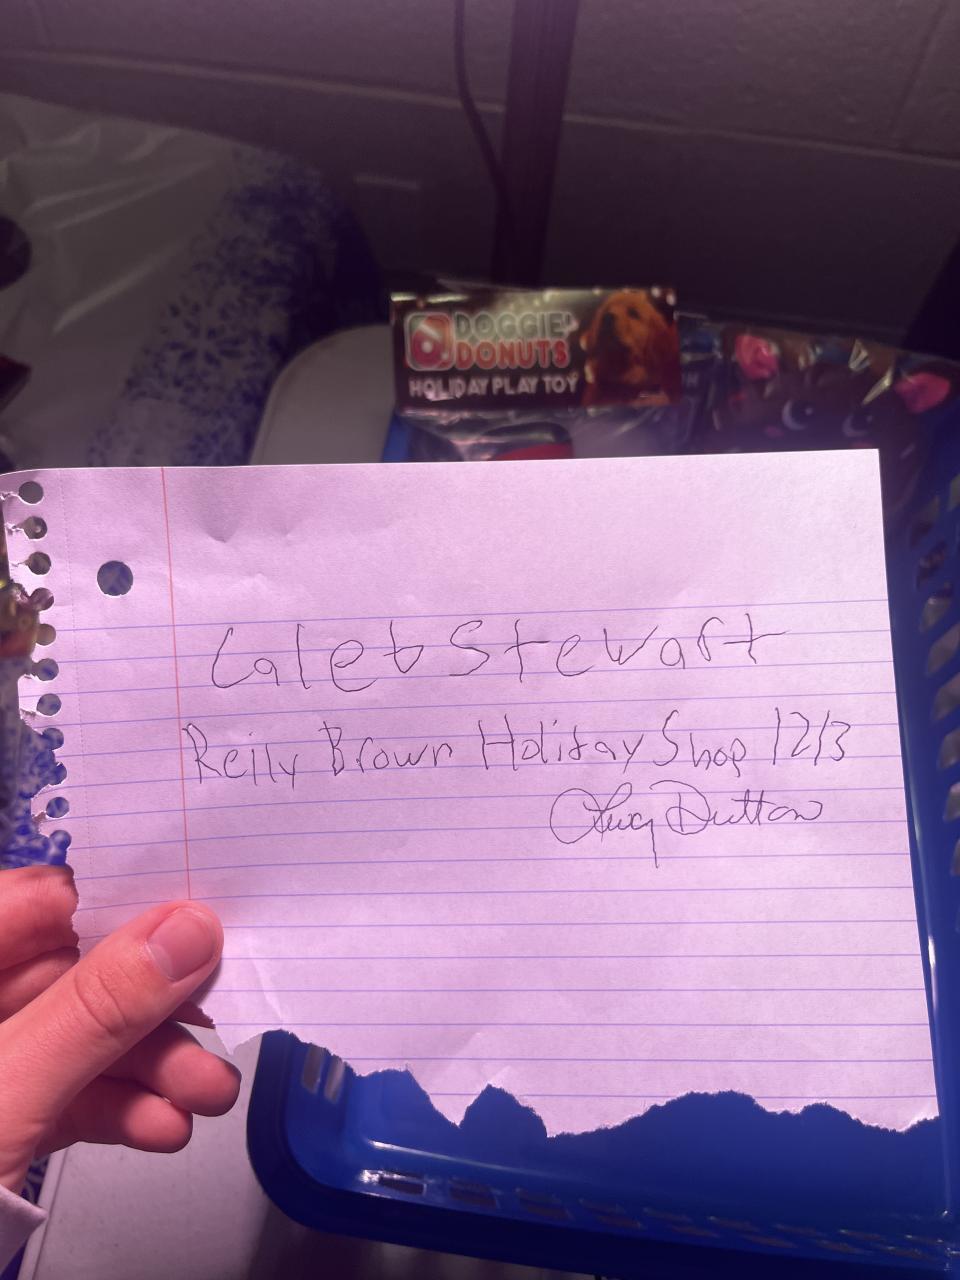 DOGGIE'S
DONUTS
HOLIDAY PLAY TOY
Caleb Stewart
Reily Brown Holiday Shop 12/3
Dutton